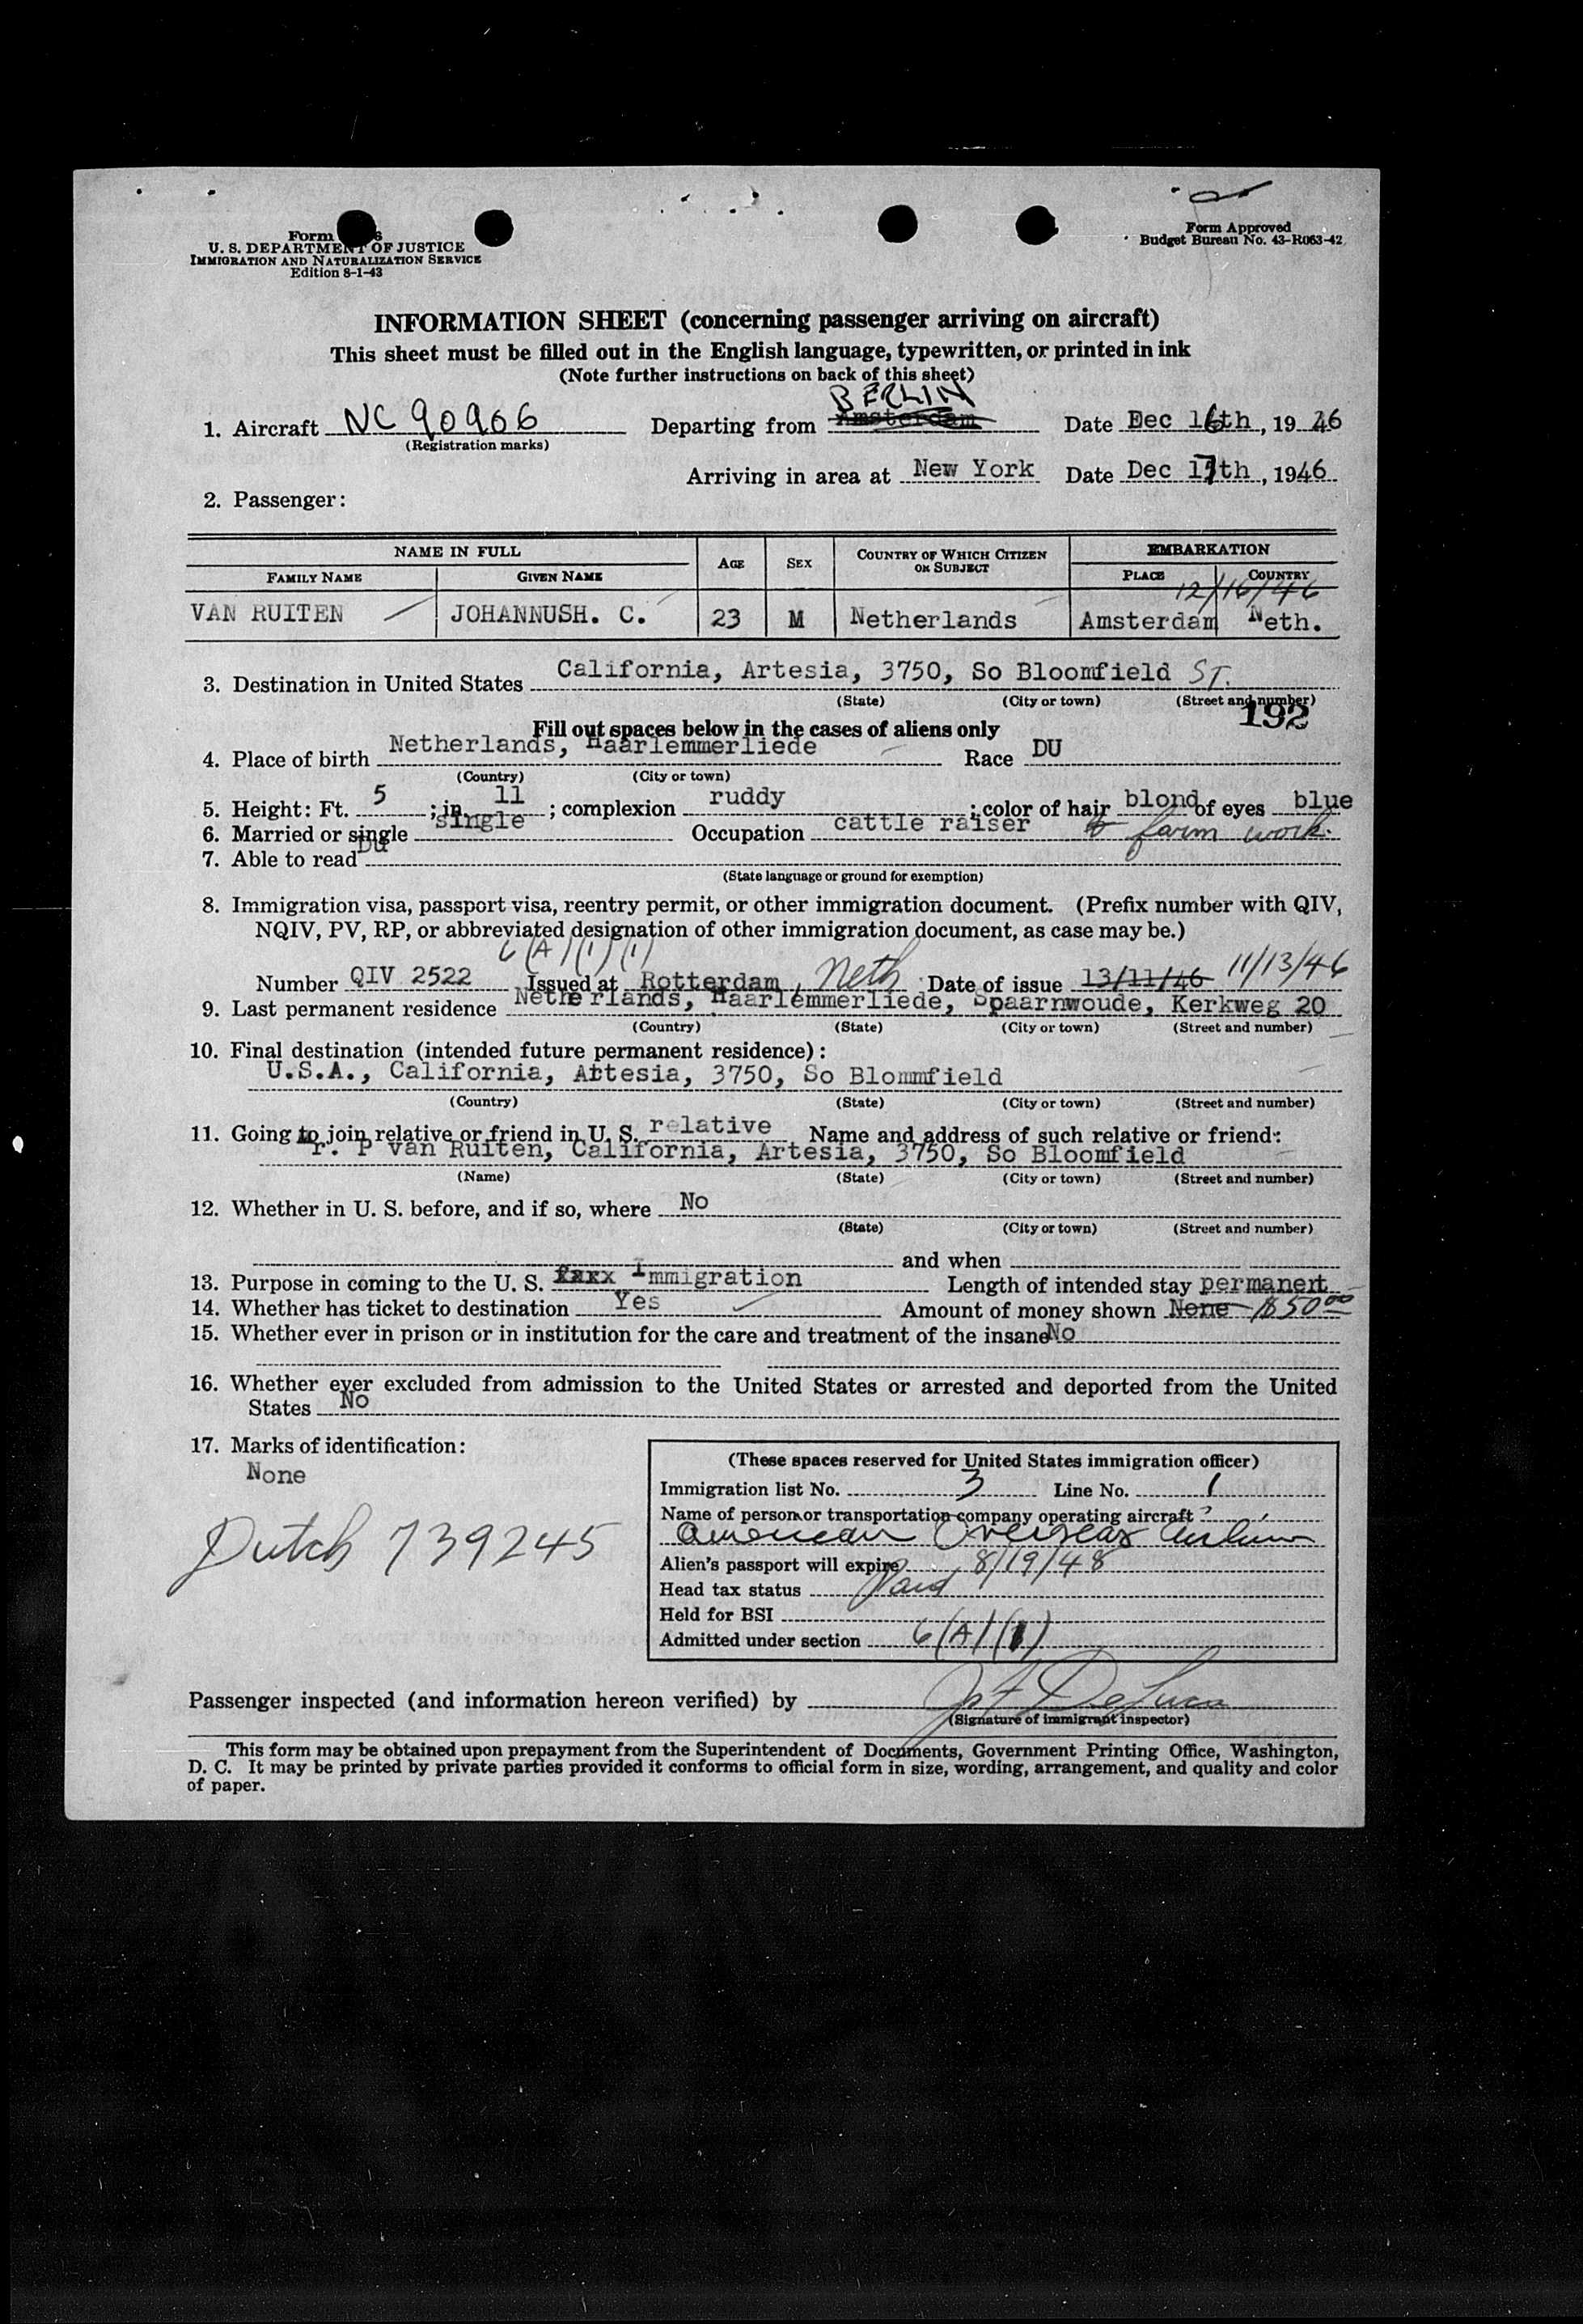 Form
U. S. DEPARTMENT OF JUSTICE
IMMIGRATION AND NATURALIZATION SERVICE
Edition 8-1-43
Form Approved
Budget Bureau No. 43-R063-42
INFORMATION SHEET (concerning passenger arriving on aircraft)
This sheet must be filled out in the English language, typewritten, or printed in ink
(Note further instructions on back of this sheet)
BERLIN
1. Aircraft NC 90906 Departing from Amsterdam Date Dec 16th, 1946
(Registration marks)
Arriving in area at New York Date Dec 17th, 1946
2. Passenger:
NAME IN FULL AGE SEX COUNTRY OF WHICH CITIZEN OR SUBJECT EMBARKATION
FAMILY NAME GIVEN NAME PLACE COUNTRY
12/16/46
VAN RUITEN JOHANNUSH. C. 23 M Netherlands Amsterdam Neth.
3. Destination in United States California, Artesia, 3750, So Bloomfield ST.
(State) (City or town) (Street and number)
192
Fill out spaces below in the cases of aliens only
4. Place of birth Netherlands, Haarlemmerliede Race DU
(Country) (City or town)
5. Height: Ft. 5; in. 11; complexion ruddy; color of hair blond of eyes blue
6. Married or single single Occupation cattle raiser to farm work.
7. Able to read Du
(State language or ground for exemption)
8. Immigration visa, passport visa, reentry permit, or other immigration document. (Prefix number with QIV,
NQIV, PV, RP, or abbreviated designation of other immigration document, as case may be.)
6(A)(1)(1)
Number QIV 2522 Issued at Rotterdam, Neth Date of issue 13/11/46 11/13/46
9. Last permanent residence Netherlands, Haarlemmerliede, Spaarnwoude, Kerkweg 20
(Country) (State) (City or town) (Street and number)
10. Final destination (intended future permanent residence):
U.S.A., California, Artesia, 3750, So Blommfield
(Country) (State) (City or town) (Street and number)
11. Going to join relative or friend in U. S. relative Name and address of such relative or friend:
Mr. P van Ruiten, California, Artesia, 3750, So Bloomfield
(Name) (State) (City or town) (Street and number)
12. Whether in U. S. before, and if so, where No
(State) (City or town) (Street and number)
and when
13. Purpose in coming to the U. S. Immigration Length of intended stay permanent
14. Whether has ticket to destination Yes Amount of money shown None $50 00
15. Whether ever in prison or in institution for the care and treatment of the insane No
16. Whether ever excluded from admission to the United States or arrested and deported from the United
States No
17. Marks of identification:
None
Dutch 739245
(These spaces reserved for United States immigration officer)
Immigration list No. 3 Line No. 1
Name of person or transportation company operating aircraft
American Overseas Airlines
Alien's passport will expire 8/19/48
Head tax status Paid
Held for BSI
Admitted under section 6(A)(1)
Passenger inspected (and information hereon verified) by
(Signature of immigrant inspector)
This form may be obtained upon prepayment from the Superintendent of Documents, Government Printing Office, Washington,
D. C. It may be printed by private parties provided it conforms to official form in size, wording, arrangement, and quality and color
of paper.